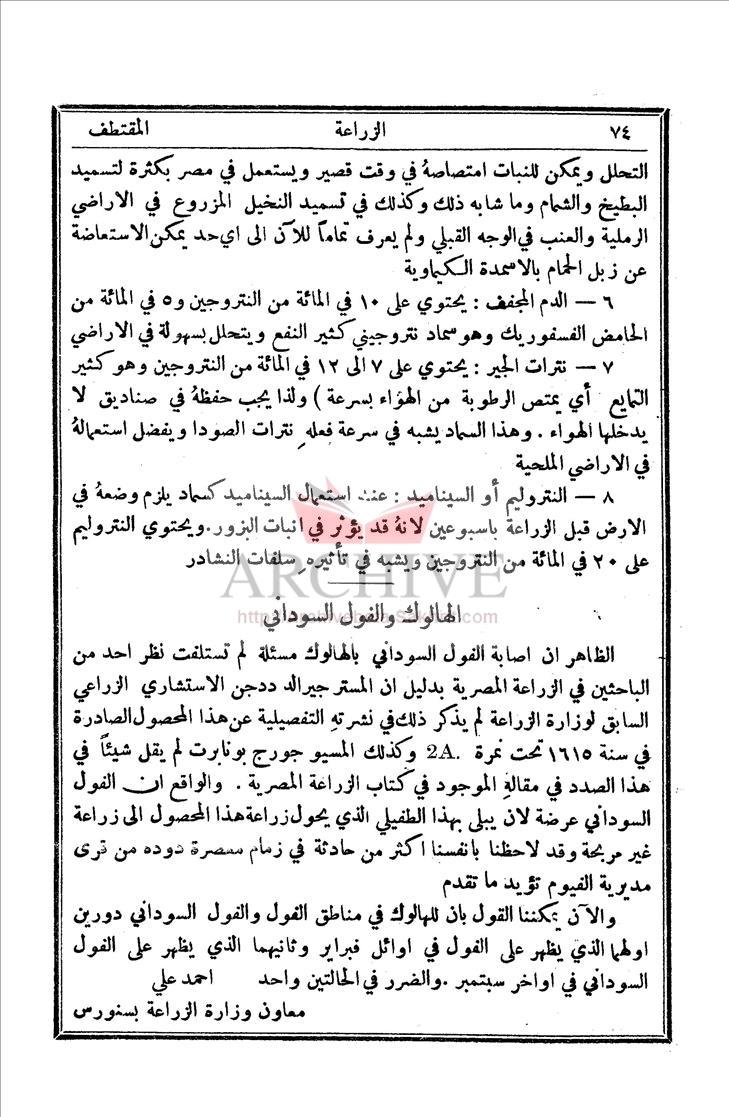 ٧٤ الزراعة المقتطف
التحلل ويمكن للنبات امتصاصهُ في وقت قصير ويستعمل في مصر بكثرة لتسميد
البطيخ والشمام وما شابه ذلك وكذلك في تسميد النخيل المزروع في الاراضي
الرملية والعنب في الوجه القبلي ولم يعرف تماماً للآن الى اي حد يمكن الاستعاضة
عن زبل الحمام بالاسمدة الكيماوية
٦ — الدم المجفف : يحتوي على ١٠ في المائة من النتروجين و٥ في المائة من
الحامض الفسفوريك وهو سماد نتروجيني كثير النفع ويتحلل بسهولة في الاراضي
٧ — نترات الجير : يحتوي على ٧ الى ١٢ في المائة من النتروجين وهو كثير
التمايع أي يمتص الرطوبة من الهواء بسرعة ) ولذا يجب حفظهُ في صناديق لا
يدخلها الهواء . وهذا السماد يشبه في سرعة فعلهِ نترات الصودا ويفضل استعمالهُ
في الاراضي الملحية
٨ — النتروليم أو السيناميد : عند استعمال السيناميد كسماد يلزم وضعهُ في
الارض قبل الزراعة باسبوعين لانهُ قد يؤثر في انبات البزور . ويحتوي النتروليم
على ٢٠ في المائة من النتروجين ويشبه في تأثيرهِ سلفات النشادر
ARCHIVE
الهالوك والفول السوداني
الظاهر ان اصابة الفول السوداني بالهالوك مسئلة لم تستلفت نظر احد من
الباحثين في الزراعة المصرية بدليل ان المستر جيرالد ددجن الاستشاري الزراعي
السابق لوزارة الزراعة لم يذكر ذلك في نشرتهِ التفصيلية عن هذا المحصول الصادرة
في سنة ١٦١٥ تحت نمرة 2A. وكذلك المسيو جورج بونابرت لم يقل شيئاً في
هذا الصدد في مقالهِ الموجود في كتاب الزراعة المصرية . والواقع ان الفول
السوداني عرضة لان يبلى بهذا الطفيلي الذي يحول زراعة هذا المحصول الى زراعة
غير مربحة وقد لاحظنا بانفسنا اكثر من حادثة في زمام معصرة دوده من قرى
مديرية الفيوم تؤيد ما تقدم
والآن يمكننا القول بان للهالوك في مناطق الفول والفول السوداني دورين
اولهما الذي يظهر على الفول في اوائل فبراير وثانيهما الذي يظهر على الفول
السوداني في اواخر سبتمبر . والضرر في الحالتين واحد احمد علي
معاون وزارة الزراعة بسنورس